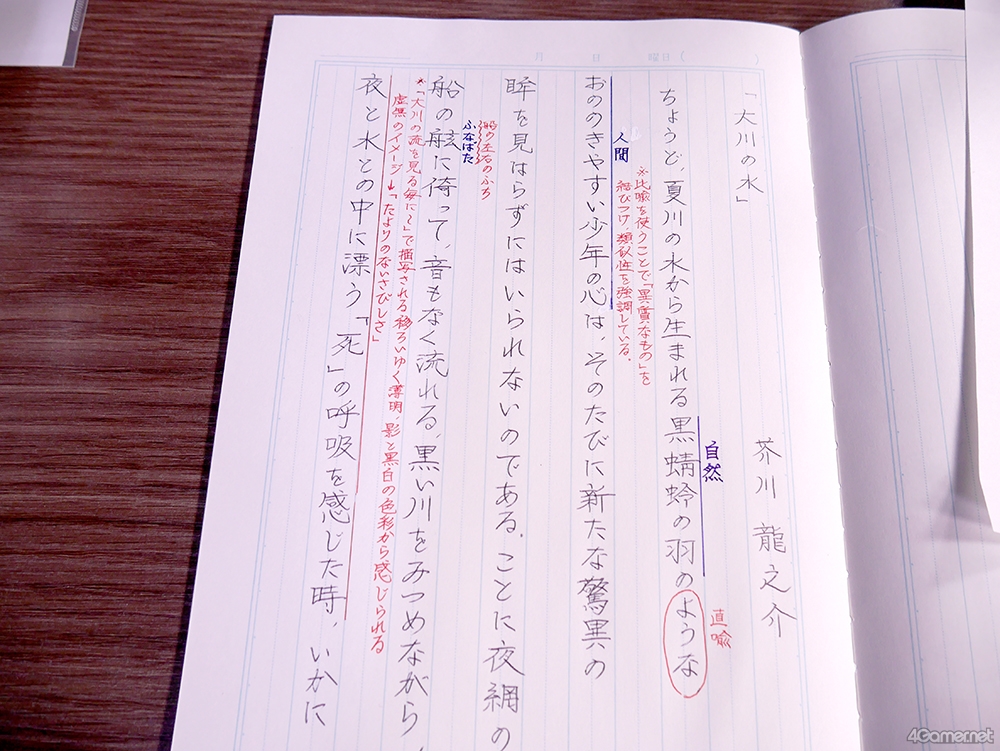 月 日 曜日( )
「大川の水」
芥川 龍之介
ちょうど、夏川の水から生まれる黒蜻蛉の羽のような
自然
直喩
※比喩を使うことで「異質なもの」を
結びつけ、類似性を強調している。
人間
おののきやすい少年の心は、そのたびに新たな驚異の
眸を見はらずにはいられないのである。ことに夜網の
船の左右のふち
ふなばた
船の舷に倚って、音もなく流れる、黒い川をみつめながら、
*「大川の流を見る毎に〜」で描写される移ろいゆく薄明、影と黒白の色彩から感じられる
虚無のイメージ→「たよりのないさびしさ」
夜と水との中に漂う、「死」の呼吸を感じた時、いかに
4Gamer.net